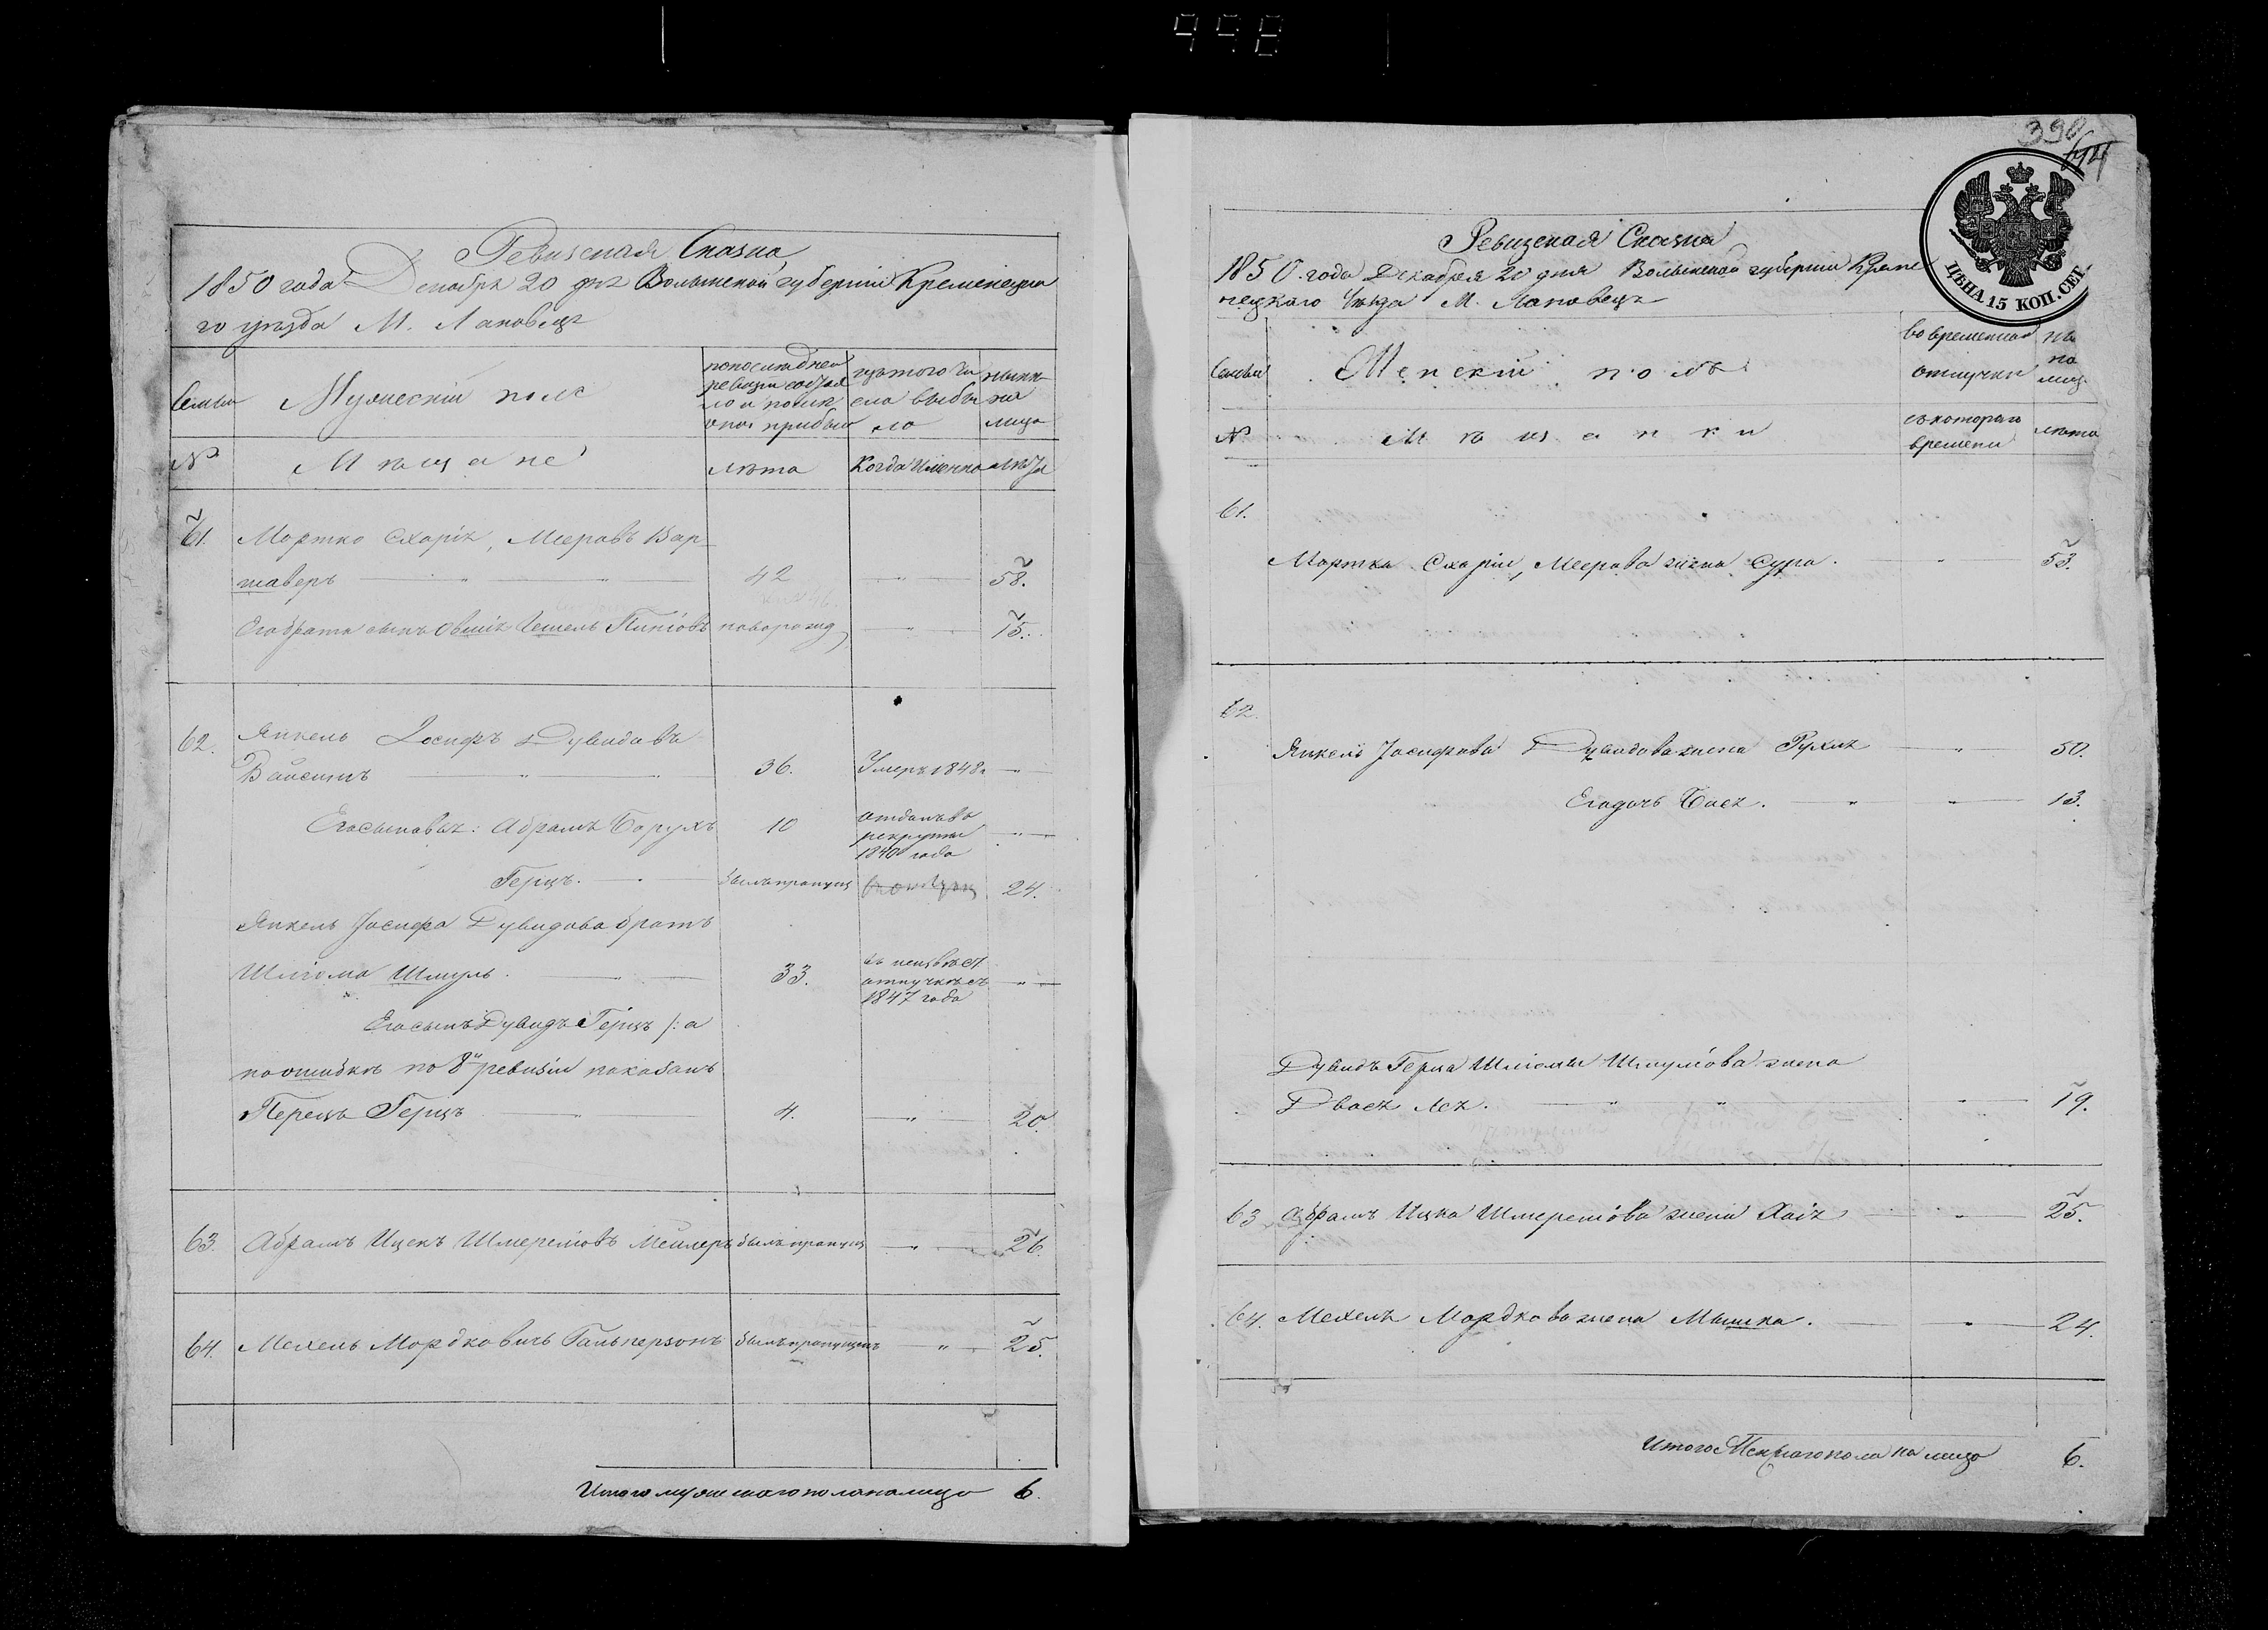 998
Ревизская Сказка
1850 года Декабря 20 дня Волынской губернии Кременецка
го уезда М. Лановец
Семьи
Мужеский пол
по последней ревизии состоя
ло и после оной прибыло
из того чи
сла выбы
ло
ныне
на
лицо
№
Мѣщане
лѣта
Когда именно
лѣта
61.
Мортко Схаріи, Мееровъ Вар
шаверъ
42
58.
Его брата сынъ Овшія Гешель Пинсовъ
новорожд
15.
62.
Янкель Іосифъ Дувидовъ
Вайсинъ
36.
Умеръ 1848
Его сыновья: Абрамъ Борухъ
10
отданъ въ
рекруты
1840 года
Герцъ.
былъ пропущ
24.
Янкель Іосифа Дувидова братъ
Шлiома Шмуль.
33.
въ неизвѣст
отлучкѣ съ
1847 года
Его сынъ Дувидъ Герцъ /: а
по ошибкѣ по 8й ревизіи показанъ
Перецъ Герцъ
4.
20.
63.
Абрамъ Ицекъ Шмерелiовъ Мейлеръ
былъ пропущ
26.
64.
Мехель Мордковичъ Гальперзонъ
былъ пропущенъ
25.
Итого мужескаго пола на лицо 6.
390
ЦѢНА 15 КОП. СЕР.
Ревизская Сказка
1850. года Декабря 20 дня Волынской губернии Креме
нецкаго Уѣзда М. Лановецъ
Семьи
Женскій полъ
во временной
отлучки
на
ли
цо
№
Мѣщанки
съ котораго
времени
лѣта
61.
Мортка Схаріи, Меерова жена Сура.
53.
62.
Янкель Іосифова Дувидова жена Рухля
50.
Его дочь Бася.
13.
Дувидъ Герца Шлiомы Шмулiова жена
Двося Лея.
19.
63
Абрамъ Ицка Шмерелiова жена Хая
25.
64.
Мехеля Мордкова жена Мышка.
24.
Итого Женскаго пола на лицо 6.